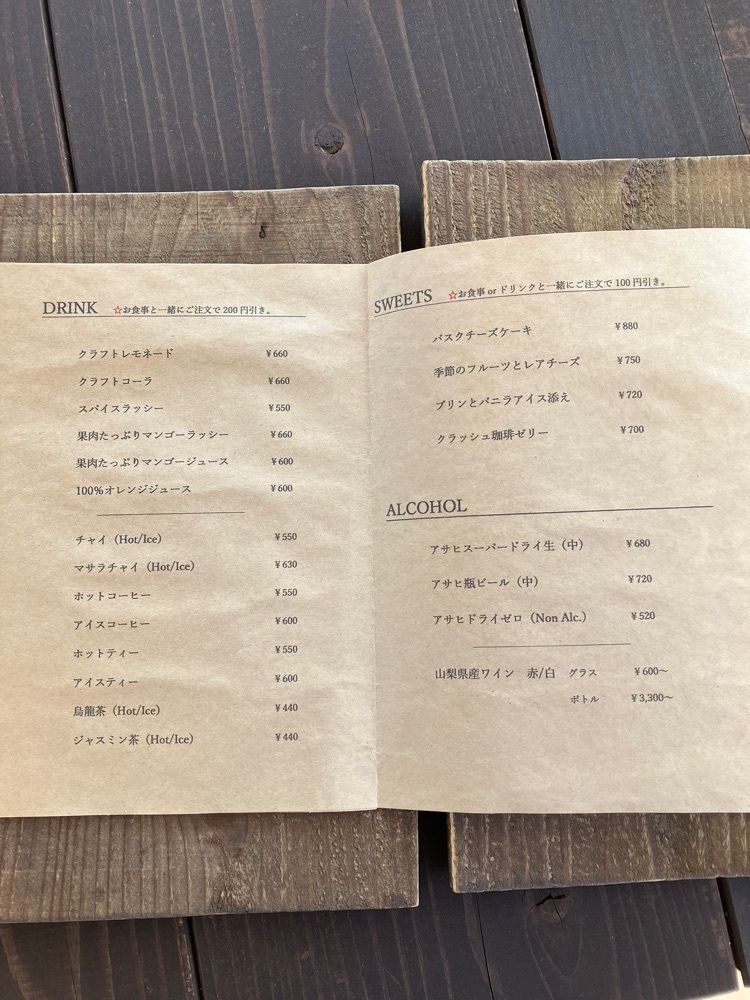 DRINK ☆お食事と一緒にご注文で200円引き。
クラフトレモネード ¥660
クラフトコーラ ¥660
スパイスラッシー ¥550
果肉たっぷりマンゴーラッシー ¥660
果肉たっぷりマンゴージュース ¥600
100%オレンジジュース ¥600
チャイ（Hot/Ice） ¥550
マサラチャイ（Hot/Ice） ¥630
ホットコーヒー ¥550
アイスコーヒー ¥600
ホットティー ¥550
アイスティー ¥600
烏龍茶（Hot/Ice） ¥440
ジャスミン茶（Hot/Ice） ¥440
SWEETS ☆お食事 or ドリンクと一緒にご注文で100円引き。
バスクチーズケーキ ¥880
季節のフルーツとレアチーズ ¥750
プリンとバニラアイス添え ¥720
クラッシュ珈琲ゼリー ¥700
ALCOHOL
アサヒスーパードライ生（中） ¥680
アサヒ瓶ビール（中） ¥720
アサヒドライゼロ（Non Alc.） ¥520
山梨県産ワイン 赤/白 グラス ¥600〜
ボトル ¥3,300〜